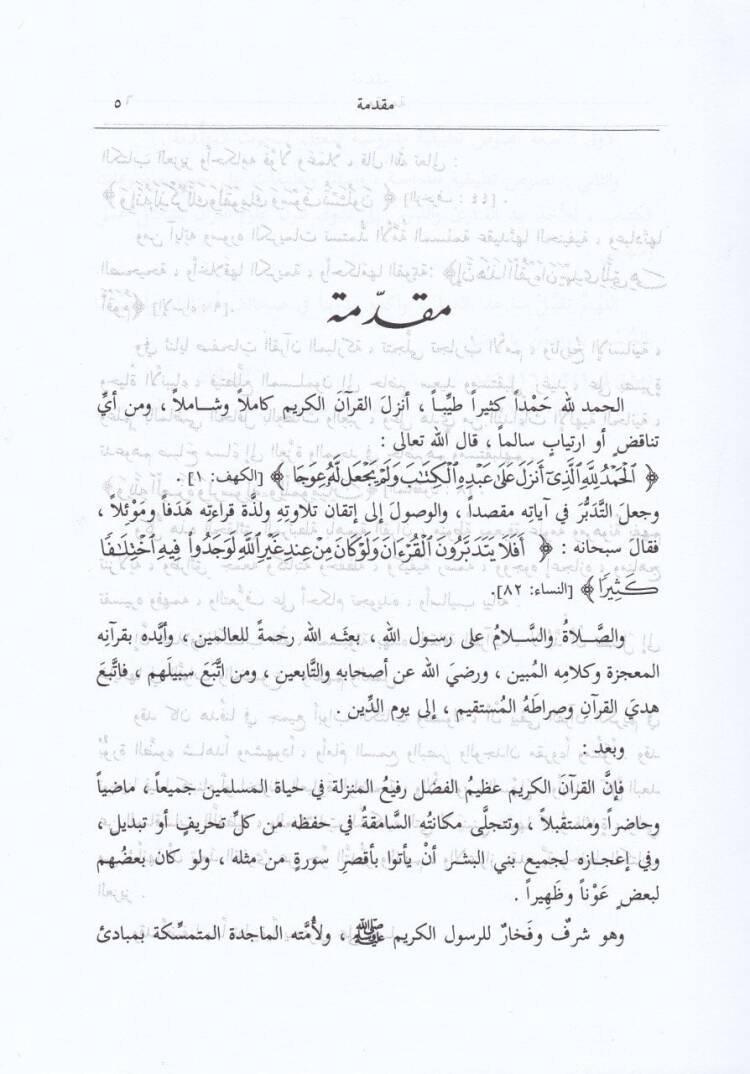 مقدمة ٥
مقدّمة
الحمد لله حَمْداً كثيراً طيِّبـاً ، أنزلَ القرآنَ الكريم كاملاً وشـاملاً ، ومن أيِّ
تناقضٍ أو ارتيابٍ سالماً ، قال الله تعالى :
﴿ الْحَمْدُ لِلَّهِ الَّذِي أَنزَلَ عَلَىٰ عَبْدِهِ الْكِتَٰبَ وَلَمْ يَجْعَل لَّهُ عِوَجَا ﴾ [الكهف: ١] .
وجعلَ التَّدَبُّرَ في آياتِه مقصداً ، والوصولَ إلى إتقان تلاوتِه ولذَّة قراءتِه هَدَفاً ومَوْئِلاً ،
فقالَ سبحانه : ﴿ أَفَلَا يَتَدَبَّرُونَ الْقُرْءَانَ وَلَوْ كَانَ مِنْ عِندِ غَيْرِ اللَّهِ لَوَجَدُوا فِيهِ اخْتِلَٰفًا
كَثِيرًا ﴾ [النساء: ٨٢].
والصَّـلاةُ والسَّـلامُ على رسول الله ، بعثَـه الله رحمةً للعالمين ، وأيَّده بقرآنِه
المعجزة وكلامِه المُبين ، ورضيَ الله عن أصحابه والتَّابعين ، ومن اتَّبَعَ سبيلَهم ، فاتَّبعَ
هديَ القرآنِ وصراطَهُ المُستقيم ، إلى يوم الدِّين .
وبعد :
فإنَّ القرآنَ الكريم عظيمُ الفضل رفيعُ المنزلة في حياة المسلمين جميعاً ، ماضياً
وحاضراً ومستقبلاً ، وتتجلَّى مكانتُه السَّامقةُ في حفظه من كلِّ تحريفٍ أو تبديل ،
وفي إعجازه لجميع بني البشـر أنْ يأتوا بأقصرِ سورةٍ من مثله ، ولو كان بعضُهم
لبعضٍ عَوْناً وظَهِيراً .
وهو شرفٌ وفَخارٌ للرسول الكريم ﷺ ، ولأمَّته الماجدة المتمسِّكة بمبادئ